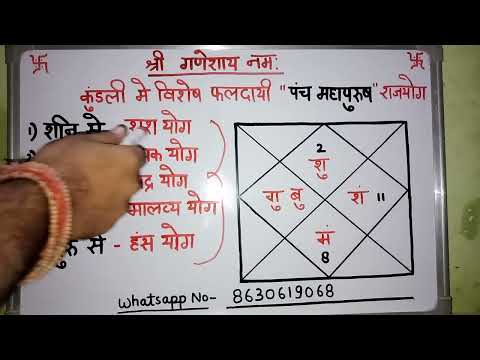 श्री गणेशाय नमः
कुंडली मे विशेष फलदायी "पंच महापुरुष" राजयोग
1) शनि से - शश योग
योग
मालव्य योग
से - हंस योग
2
शु
गु बु
शं 11
मं
8
Whatsapp No- 8630619068